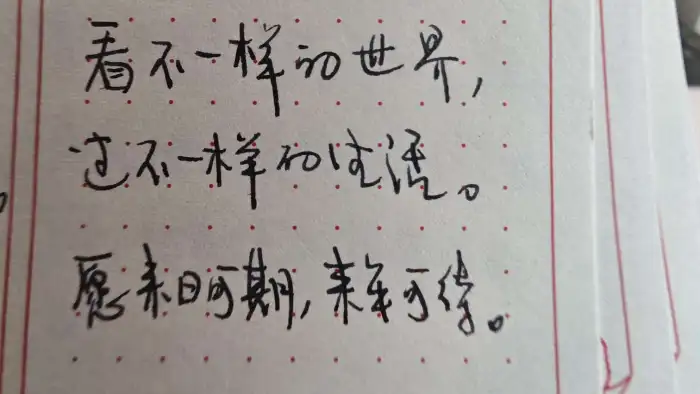 看不一样的世界,
过不一样的生活。
愿来日可期,来年可待。